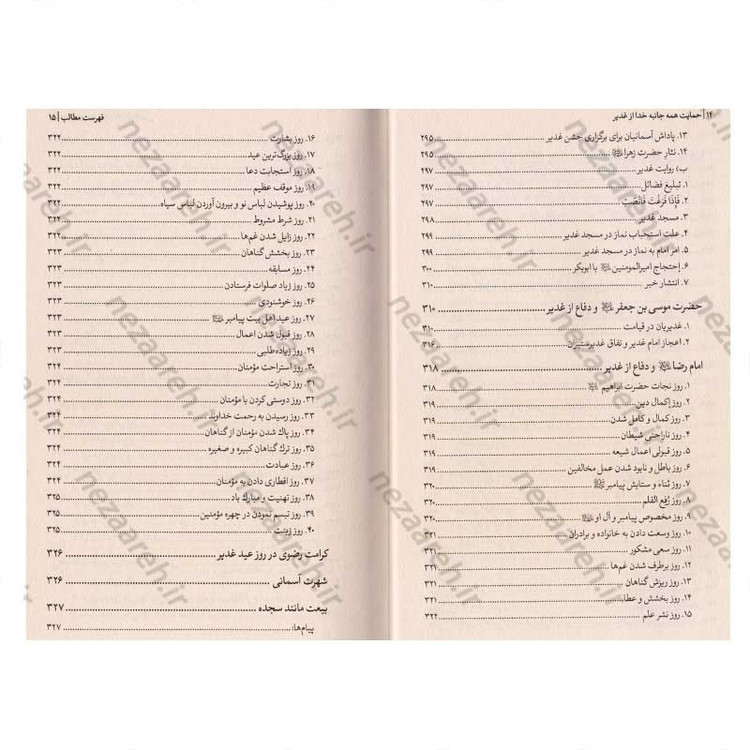 ۱۴ | حمایت همه جانبه خدا از غدیر
۱۳. پاداش آسمانیان برای برگزاری جشن غدیر ۲۹۵
۱۴. نثار حضرت زهرا ۲۹۵
ب) روایت غدیر ۲۹۷
۱. تبلیغ فضائل ۲۹۷
۲. فَإِذَا فَرَغْتَ فَانْصَبْ ۲۹۷
۳. مسجد غدیر ۲۹۸
۴. علت استحباب نماز در مسجد غدیر ۲۹۹
۵. امر امام به نماز در مسجد غدیر ۲۹۹
۶. إحتجاج امیرالمومنین با ابوبکر ۳۰۰
۷. انتشار خبر
حضرت موسی بن جعفر و دفاع از غدیر ۳۱۰
۱. غدیریان در قیامت ۳۱۰
۲. اعجاز امام غدیر و نفاق غدیرستیزن ۳۱۶
امام رضا و دفاع از غدیر ۳۱۸
۱. روز نجات حضرت ابراهیم ۳۱۸
۲. روز إکمال دین ۳۱۹
۳. روز کمال و کامل شدن ۳۱۹
۴. روز ناراحتی شیطان ۳۱۹
۵. روز قبولی اعمال شیعه ۳۱۹
۶. روز باطل و نابود شدن عمل مخالفین ۳۱۹
۷. روز ثناء و ستایش پیامبر ۳۲۰
۸. روز رُفِع القلم ۳۲۰
۹. روز مخصوص پیامبر و آل او ۳۲۰
۱۰. روز وسعت دادن به خانواده و برادران ۳۲۱
۱۱. روز سعی مشکور ۳۲۱
۱۲. روز برطرف شدن غم‌ها ۳۲۱
۱۳. روز ریزش گناهان ۳۲۱
۱۴. روز بخشش و عطاء ۳۲۱
۱۵. روز نشر علم ۳۲۲
فهرست مطالب | ۱۵
۱۶. روز بشارت ۳۲۲
۱۷. روز بزرگ‌ترین عید ۳۲۲
۱۸. روز استجابت دعا ۳۲۲
۱۹. روز موقف عظیم ۳۲۲
۲۰. روز پوشیدن لباس نو و بیرون آوردن لباس سیاه ۳۲۲
۲۱. روز شرط مشروط ۳۲۲
۲۲. روز زایل شدن غم‌ها ۳۲۲
۲۳. روز بخشش گناهان ۳۲۳
۲۴. روز مسابقه ۳۲۳
۲۵. روز زیاد صلوات فرستادن ۳۲۳
۲۶. روز خوشنودی ۳۲۳
۲۷. روز عید اهل بیت پیامبر ۳۲۳
۲۸. روز قبول شدن اعمال ۳۲۳
۲۹. روز زیاده‌طلبی ۳۲۳
۳۰. روز استراحت مؤمنان ۳۲۴
۳۱. روز تجارت ۳۲۴
۳۲. روز دوستی کردن با مؤمنان ۳۲۴
۳۳. روز رسیدن به رحمت خداوند ۳۲۴
۳۴. روز پاك شدن مؤمنان از گناهان ۳۲۴
۳۵. روز ترك گناهان کبیره و صغیره ۳۲۴
۳۶. روز عبادت ۳۲۴
۳۷. روز افطاری دادن به مؤمنان ۳۲۴
۳۸. روز تهنیت و مبارك باد ۳۲۵
۳۹. روز تبسم نمودن در چهره مؤمنین ۳۲۵
۴۰. روز زینت ۳۲۵
کرامت رضوی در روز عید غدیر ۳۲۶
شهرت آسمانی ۳۲۶
بیعت مانند سجده ۳۲۷
پیام‌ها: ۳۲۷
nezaareh.ir